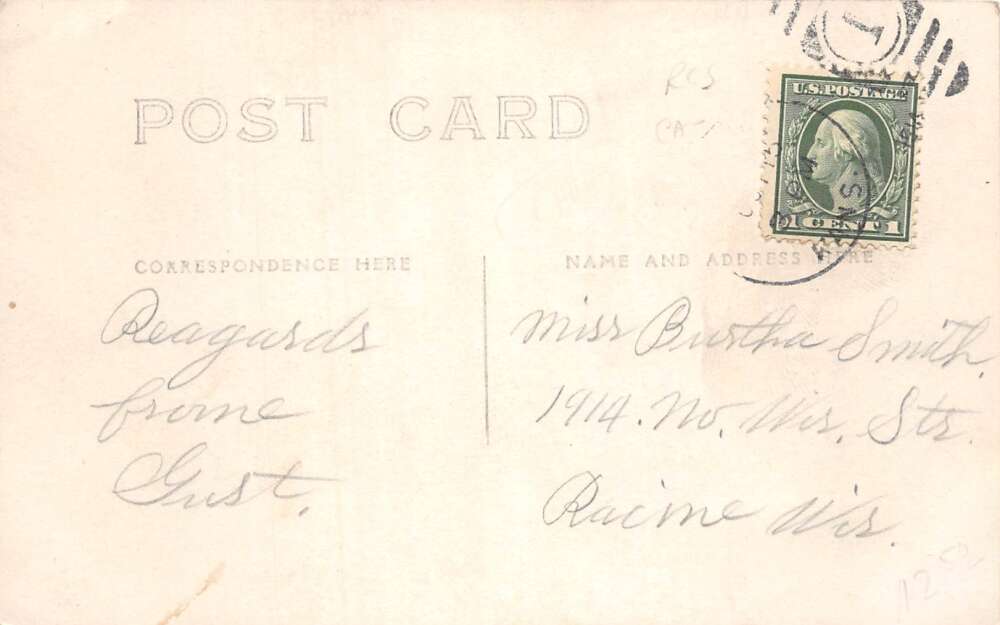 POST CARD
RCS
U.S. POSTAGE
1 CENT 1
CORRESPONDENCE HERE
NAME AND ADDRESS HERE
Reagards
frome
Gust.
Miss Burtha Smith.
1914. No. Wis. Str.
Racine Wis.